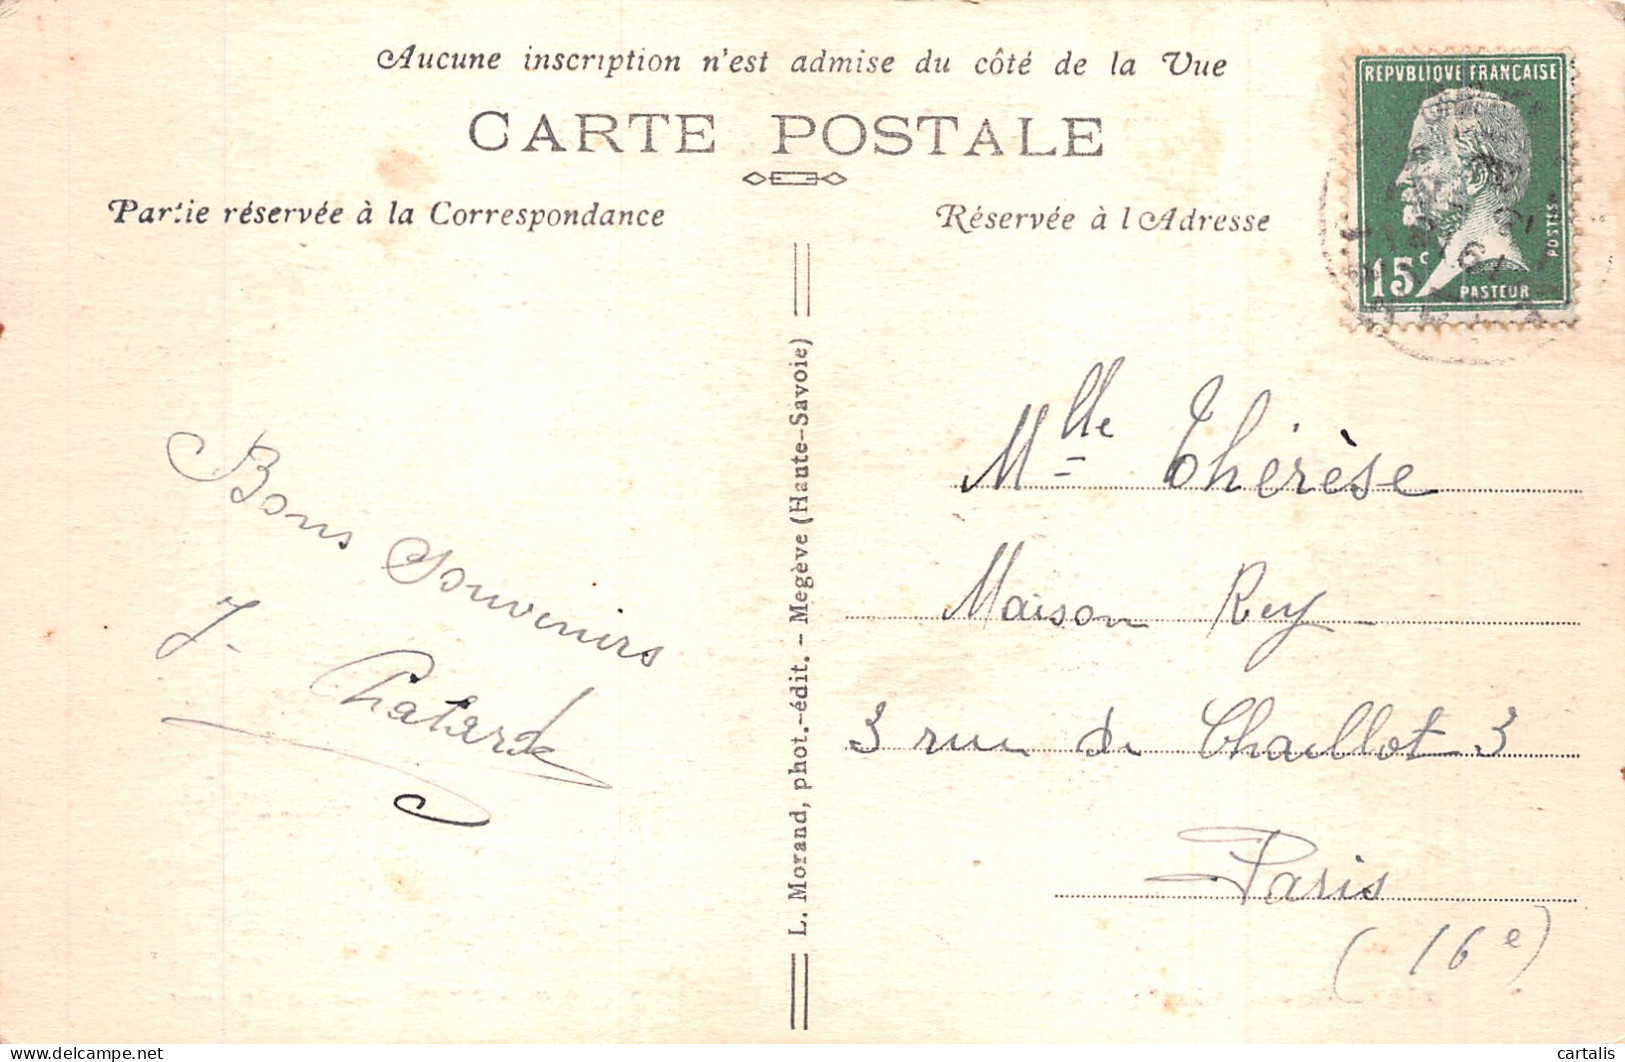 Aucune inscription n'est admise du côté de la Vue
CARTE POSTALE
Partie réservée à la Correspondance
Réservée à l Adresse
REPVBLIQVE FRANÇAISE
POSTES
15c
PASTEUR
Bons Souvenirs
J. Chatard
L. Morand, phot.-édit. - Megève (Haute-Savoie)
Mlle Thérèse
Maison Rey
3 rue de Chaillot 3
Paris
(16e)
delcampe.net
cartalis